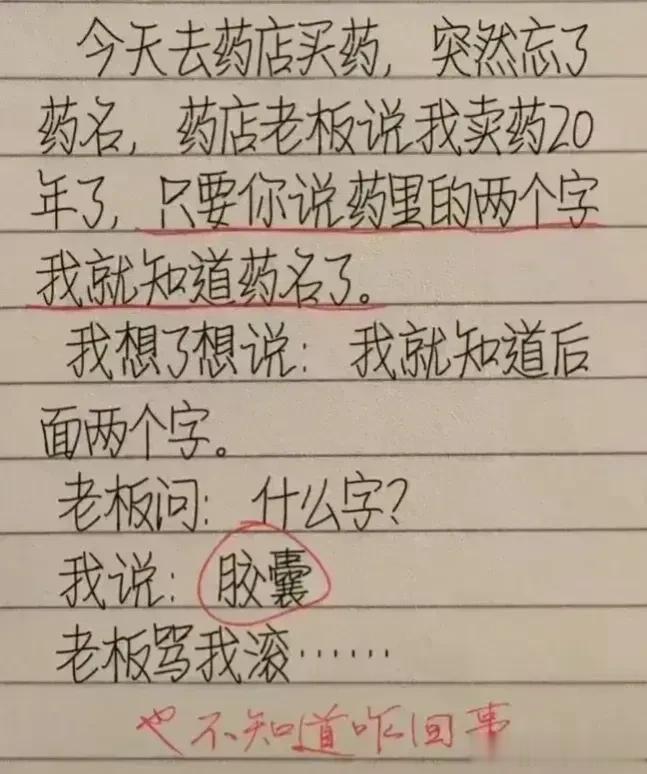 今天去药店买药，突然忘了
药名，药店老板说我卖药20
年了，只要你说药里的两个字
我就知道药名了。
我想了想说：我就知道后
面两个字。
老板问：什么字？
我说：胶囊
老板骂我滚……
也不知道咋回事